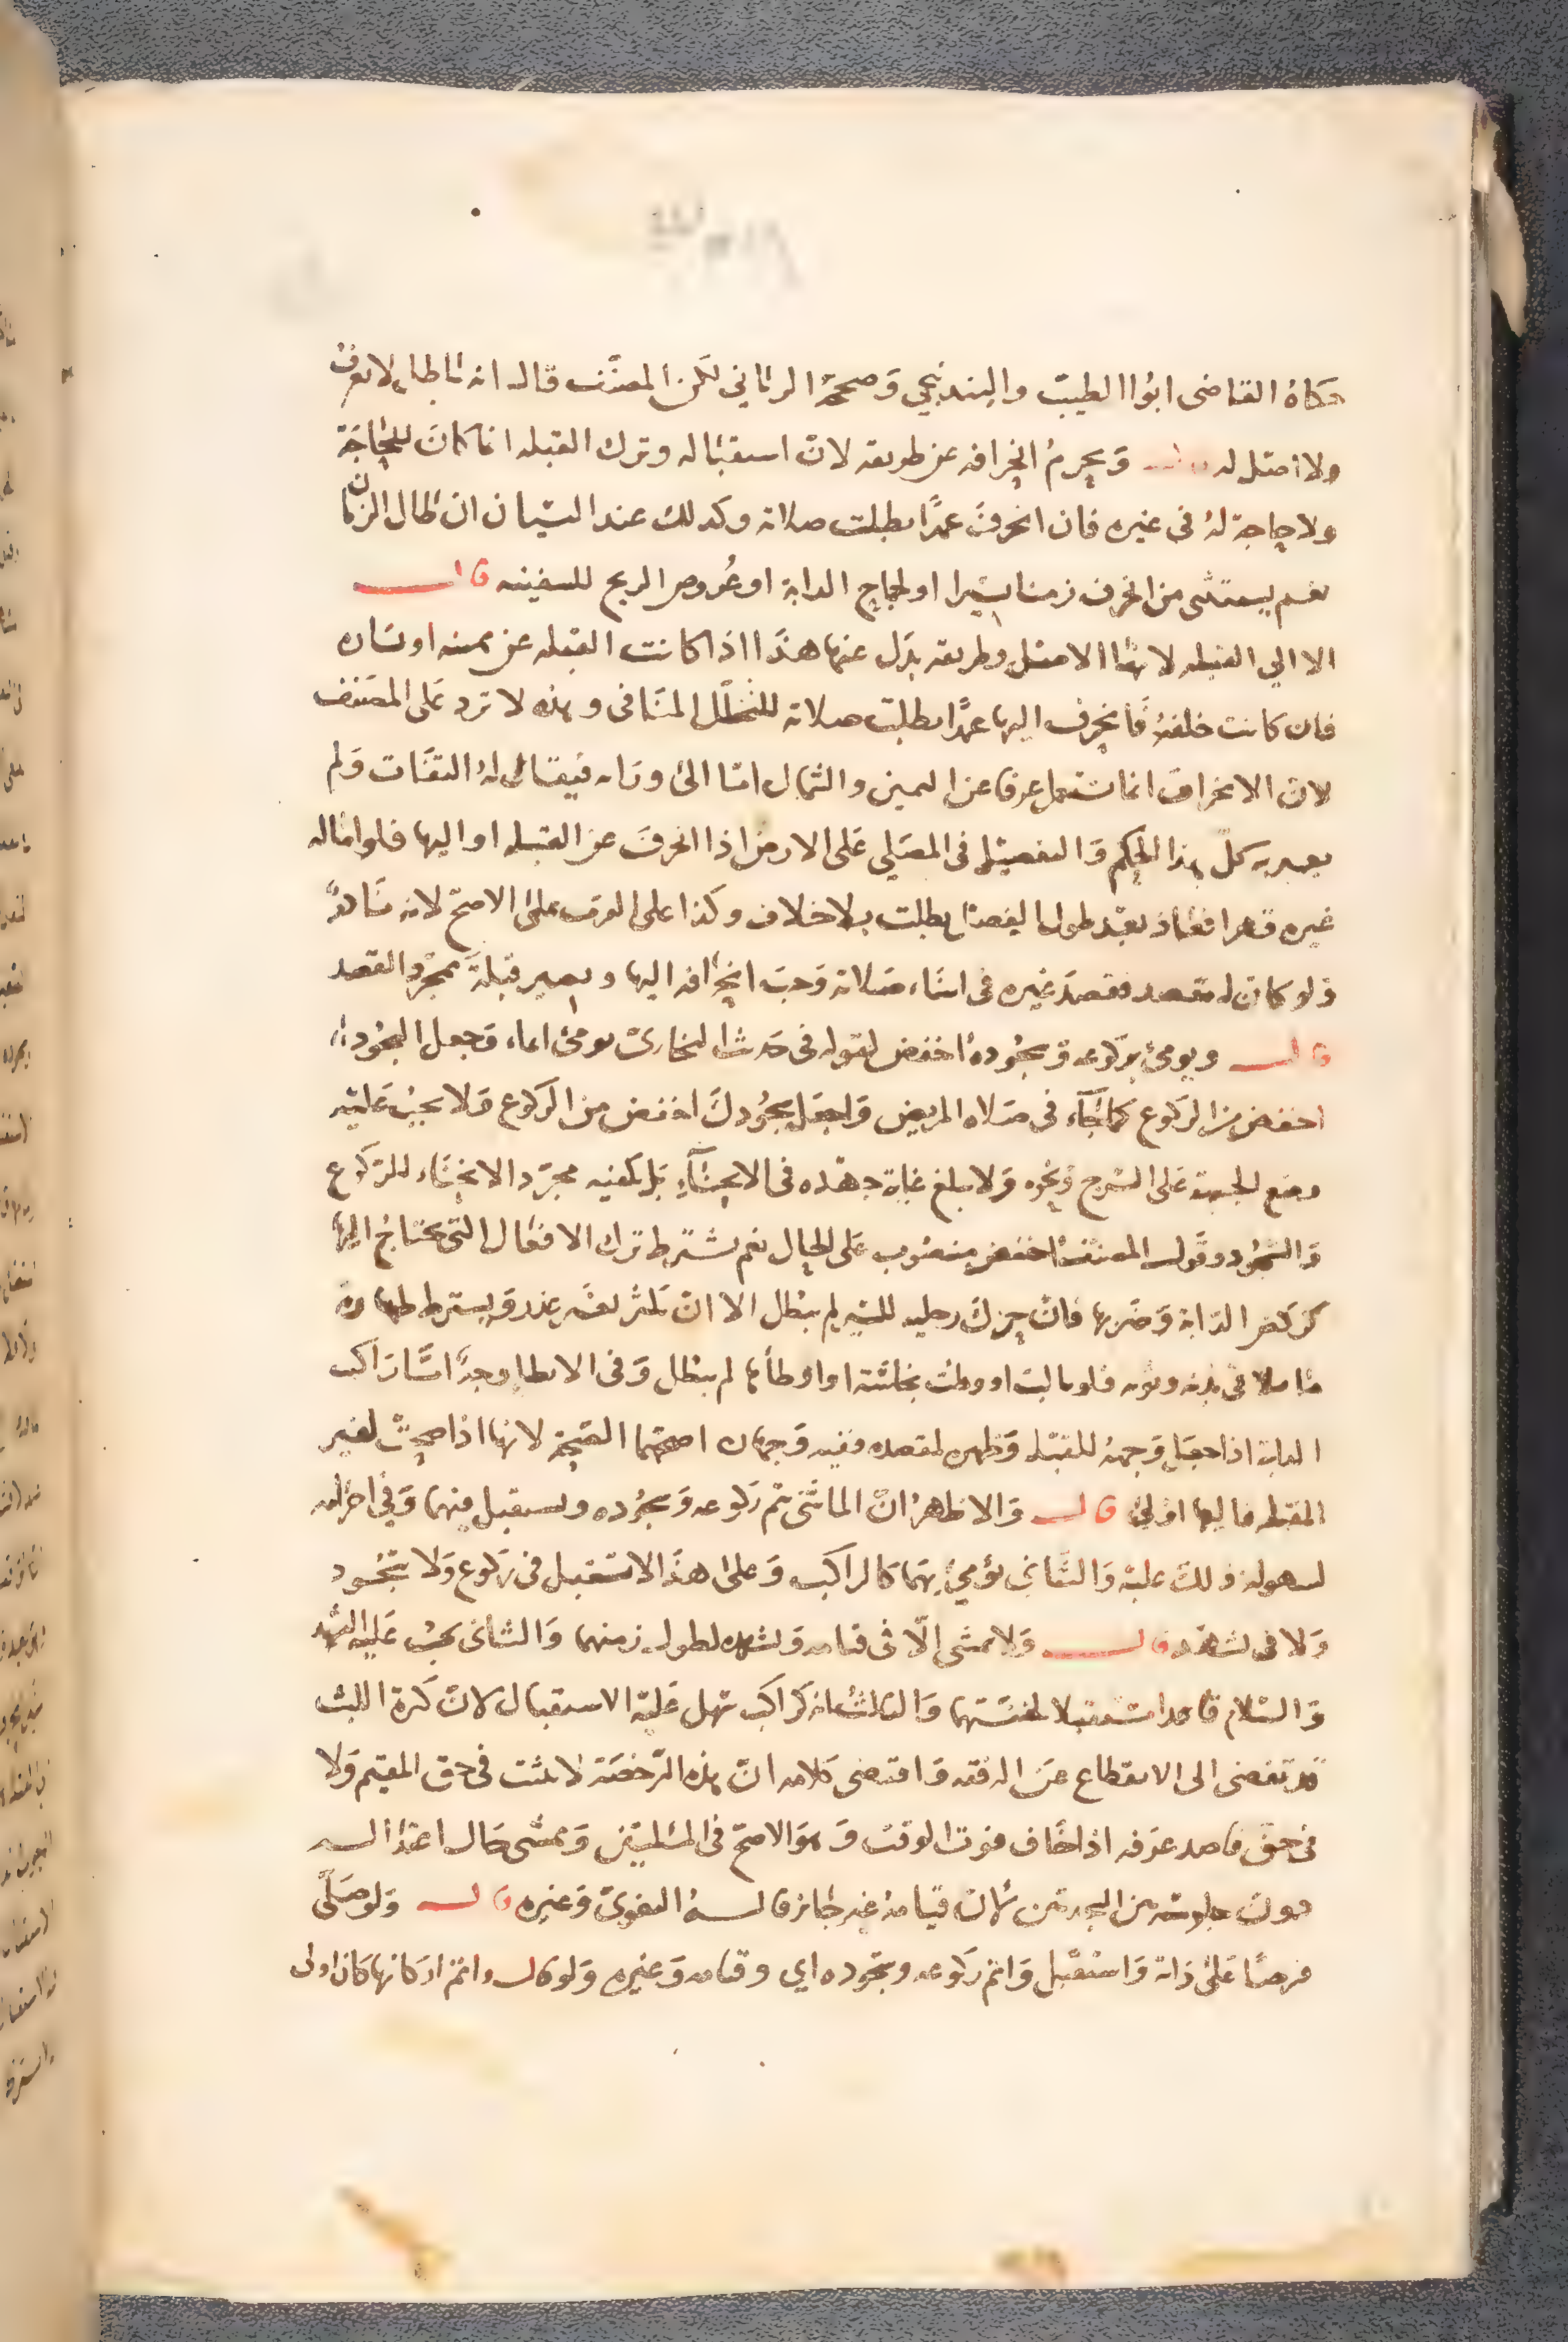 حكاه القاضى ابوا الطيب والبندنيجي وصححه الرياني لكن المصنف قال انه باطل لا يعرف
ولا اصل له قال ويحرم انحرافه عن طريقه لان استقباله وترك القبله انما كان للحاجة
ولا حاجة له فى غيره فان انحرف عمدًا بطلت صلاته وكذلك عند النسيان ان طال الزمان
نعم يستثنى من انحرف زمنا يسيرا او لجماح الدابة او عروض الريح للسفينه قال
الا الي القبله لانها الاصل وطريقه بدل عنها هذا اذا كانت القبله عن يمينه او يساره
فان كانت خلفه فانحرف اليها عمدًا بطلت صلاته للتخلل المنافى وهذه لا ترد على المصنف
لان الانحراف انما يستعمل عرفا عن اليمين والشمال امّا الى ورائه فيقال له التفات ولم
يعبر به كل هذا الحكم والتفصيل فى المصلي على الارض اذا انحرف عن القبله او اليها فلو اماله
غيره قهرا فعاد بعد طول الفصل بطلت بلا خلاف وكذا على القرب على الاصح لانه نادر
ولو كان له مقصد فقصد غيره فى اثناء صلاته وجب انحرافه اليها ويصير قبلة بمجرد القصد
قال ويومئ بركوعه وسجوده اخفض لقوله فى حديث البخارى يومئ ايماء وجعل السجود
اخفض من الركوع كما جاء فى صلاه المريض واجعل سجودك اخفض من الركوع ولا يجب عليه
وضع الجبهة على السرج ونحوه ولا يبلغ غاية جهده فى الانحناء بل يكفيه مجرد الانحناء للركوع
والسجود وقول المصنف اخفض منصوب على الحال نعم يشترط ترك الافعال التى يحتاج اليها
كركض الدابة وضربها فان حرك رجليه للسير لم يبطل الا ان كثر بغير عذر ويشترط طهارة
ما يلاقى بدنه وثوبه فلو بالت او وطئت نجاسة او اوطأها لم يبطل وفى الايطاء وجه امّا راكب
الدابة اذا جعل وجهه للقبله وظهره لمقصده ففيه وجهان اصحهما الصحة لانها اذا صحت لغير
القبله فاليها اولى قال والاظهر ان الماشى يتم ركوعه وسجوده ويستقبل فيهما وفي احرامه
لسهولة ذلك عليه والثاني يؤمئ بهما كالراكب وعلى هذا لا يستقبل فى ركوع ولا سجود
ولا فى تشهده قال ولا يمشى الّا فى قيامه وتشهده لطول زمنهما والثانى يجب عليه التشهد
والسلام قاعدا مستقبلا لخفتهما والثالث انه كراكب سهل عليه الاستقبال لان كثرة اللبث
قد تفضى الى الانقطاع عن الرفقه واقتضى كلامه ان هذه الرخصة لا تثبت فى حق المقيم ولا
فى حق قاصد عرفه اذا خاف فوت الوقت وهو الاصح فى المسئلتين ويمشى حال اعتداله
دون جلوسه بين السجدتين لان قيامه غير جائز قاله البغوى وغيره قال ولو صلّى
فرضًا على دابة واستقبل واتم ركوعه وسجوده اي وقيامه وغيره ولو قال واتم اركانها كان اولى